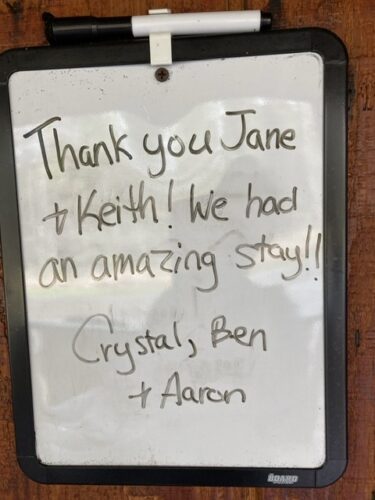 Thank you Jane
+ Keith! We had
an amazing stay!!
Crystal, Ben
+ Aaron
BOARD